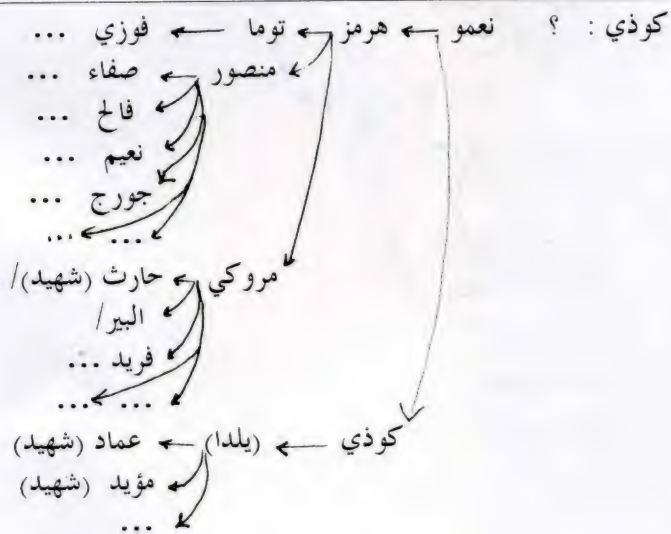 كوذي : ؟ نعمو هرمز توما فوزي ...
منصور صفاء ...
فالح ...
نعيم ...
جورج ...
... ...
مروكي حارث (شهيد)/
البير/
فريد ...
... ...
كوذي (يلدا) عماد (شهيد)
مؤيد (شهيد)
...